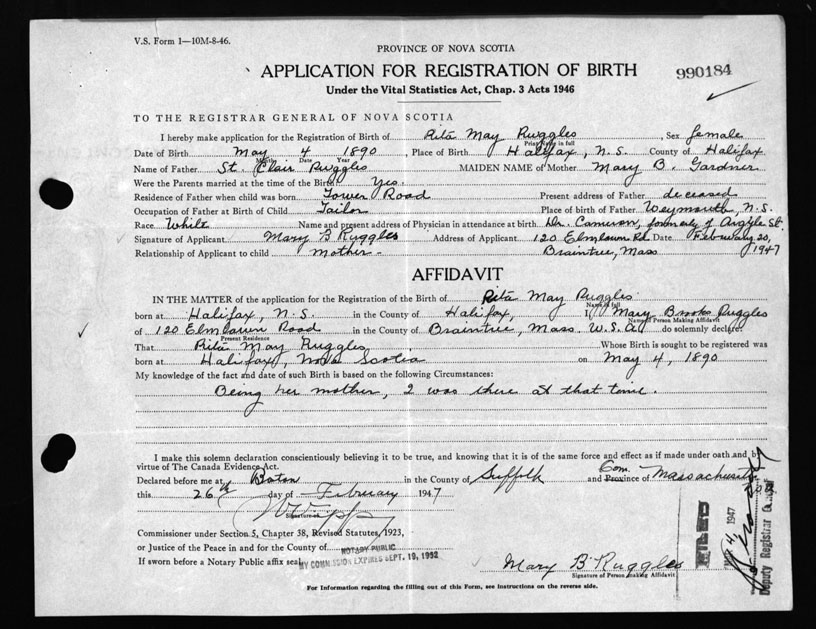 V.S. Form 1—10M-8-46.
PROVINCE OF NOVA SCOTIA
APPLICATION FOR REGISTRATION OF BIRTH
990184
Under the Vital Statistics Act, Chap. 3 Acts 1946
TO THE REGISTRAR GENERAL OF NOVA SCOTIA
I hereby make application for the Registration of Birth of Rita May Ruggles, Sex female
Print Name in full
Date of Birth May 4 1890, Place of Birth Halifax, N.S. County of Halifax
Month Date Year
Name of Father St. Clair Ruggles MAIDEN NAME of Mother Mary B. Gardner
Were the Parents married at the time of the Birth? Yes.
Residence of Father when child was born Tower Road Present address of Father deceased
Occupation of Father at Birth of Child Tailor Place of birth of Father Weymouth, N.S.
Race White Name and present address of Physician in attendance at birth Dr. Cameron, formerly of Argyle St.
Signature of Applicant Mary B Ruggles Address of Applicant 120 Elmlawn Rd Date February 20,
Relationship of Applicant to child mother - Braintree, Mass 1947
AFFIDAVIT
IN THE MATTER of the application for the Registration of the Birth of Rita May Ruggles
Name in full
born at Halifax, N.S. in the County of Halifax, I Mary Brooks Ruggles
Name of Person Making Affidavit
of 120 Elmlawn Road in the County of Braintree, Mass. U.S.A. do solemnly declare:
Present Residence
That Rita May Ruggles, Whose Birth is sought to be registered was
born at Halifax, Nova Scotia on May 4, 1890
My knowledge of the fact and date of such Birth is based on the following Circumstances:
Being her mother, I was there at that time.
I make this solemn declaration conscientiously believing it to be true, and knowing that it is of the same force and effect as if made under oath and by
virtue of The Canada Evidence Act.
Declared before me at Boston in the County of Suffolk and Province of Com. Massachusetts
this 26th day of February 1947
Signature
Commissioner under Section 5, Chapter 38, Revised Statutes, 1923,
or Justice of the Peace in and for the County of NOTARY PUBLIC
If sworn before a Notary Public affix seal. MY COMMISSION EXPIRES SEPT. 19, 1952
Mary B Ruggles
Signature of Person making Affidavit
FILED
4 1947
Deputy Registrar General
For Information regarding the filling out of this Form, see instructions on the reverse side.